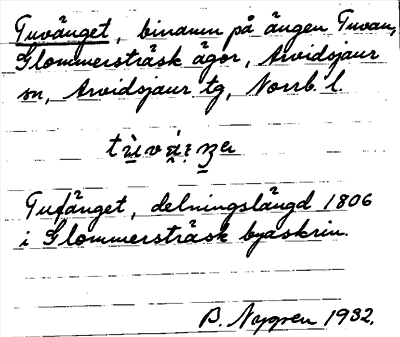 Tuvänget, binamn på ängen Tuvan,
Glommersträsk ägor, Arvidsjaur
sn, Arvidsjaur tg, Norrb. l.
Tufänget, delningslängd 1806
i Glommersträsk byaskrin.
B. Nygren 1932.